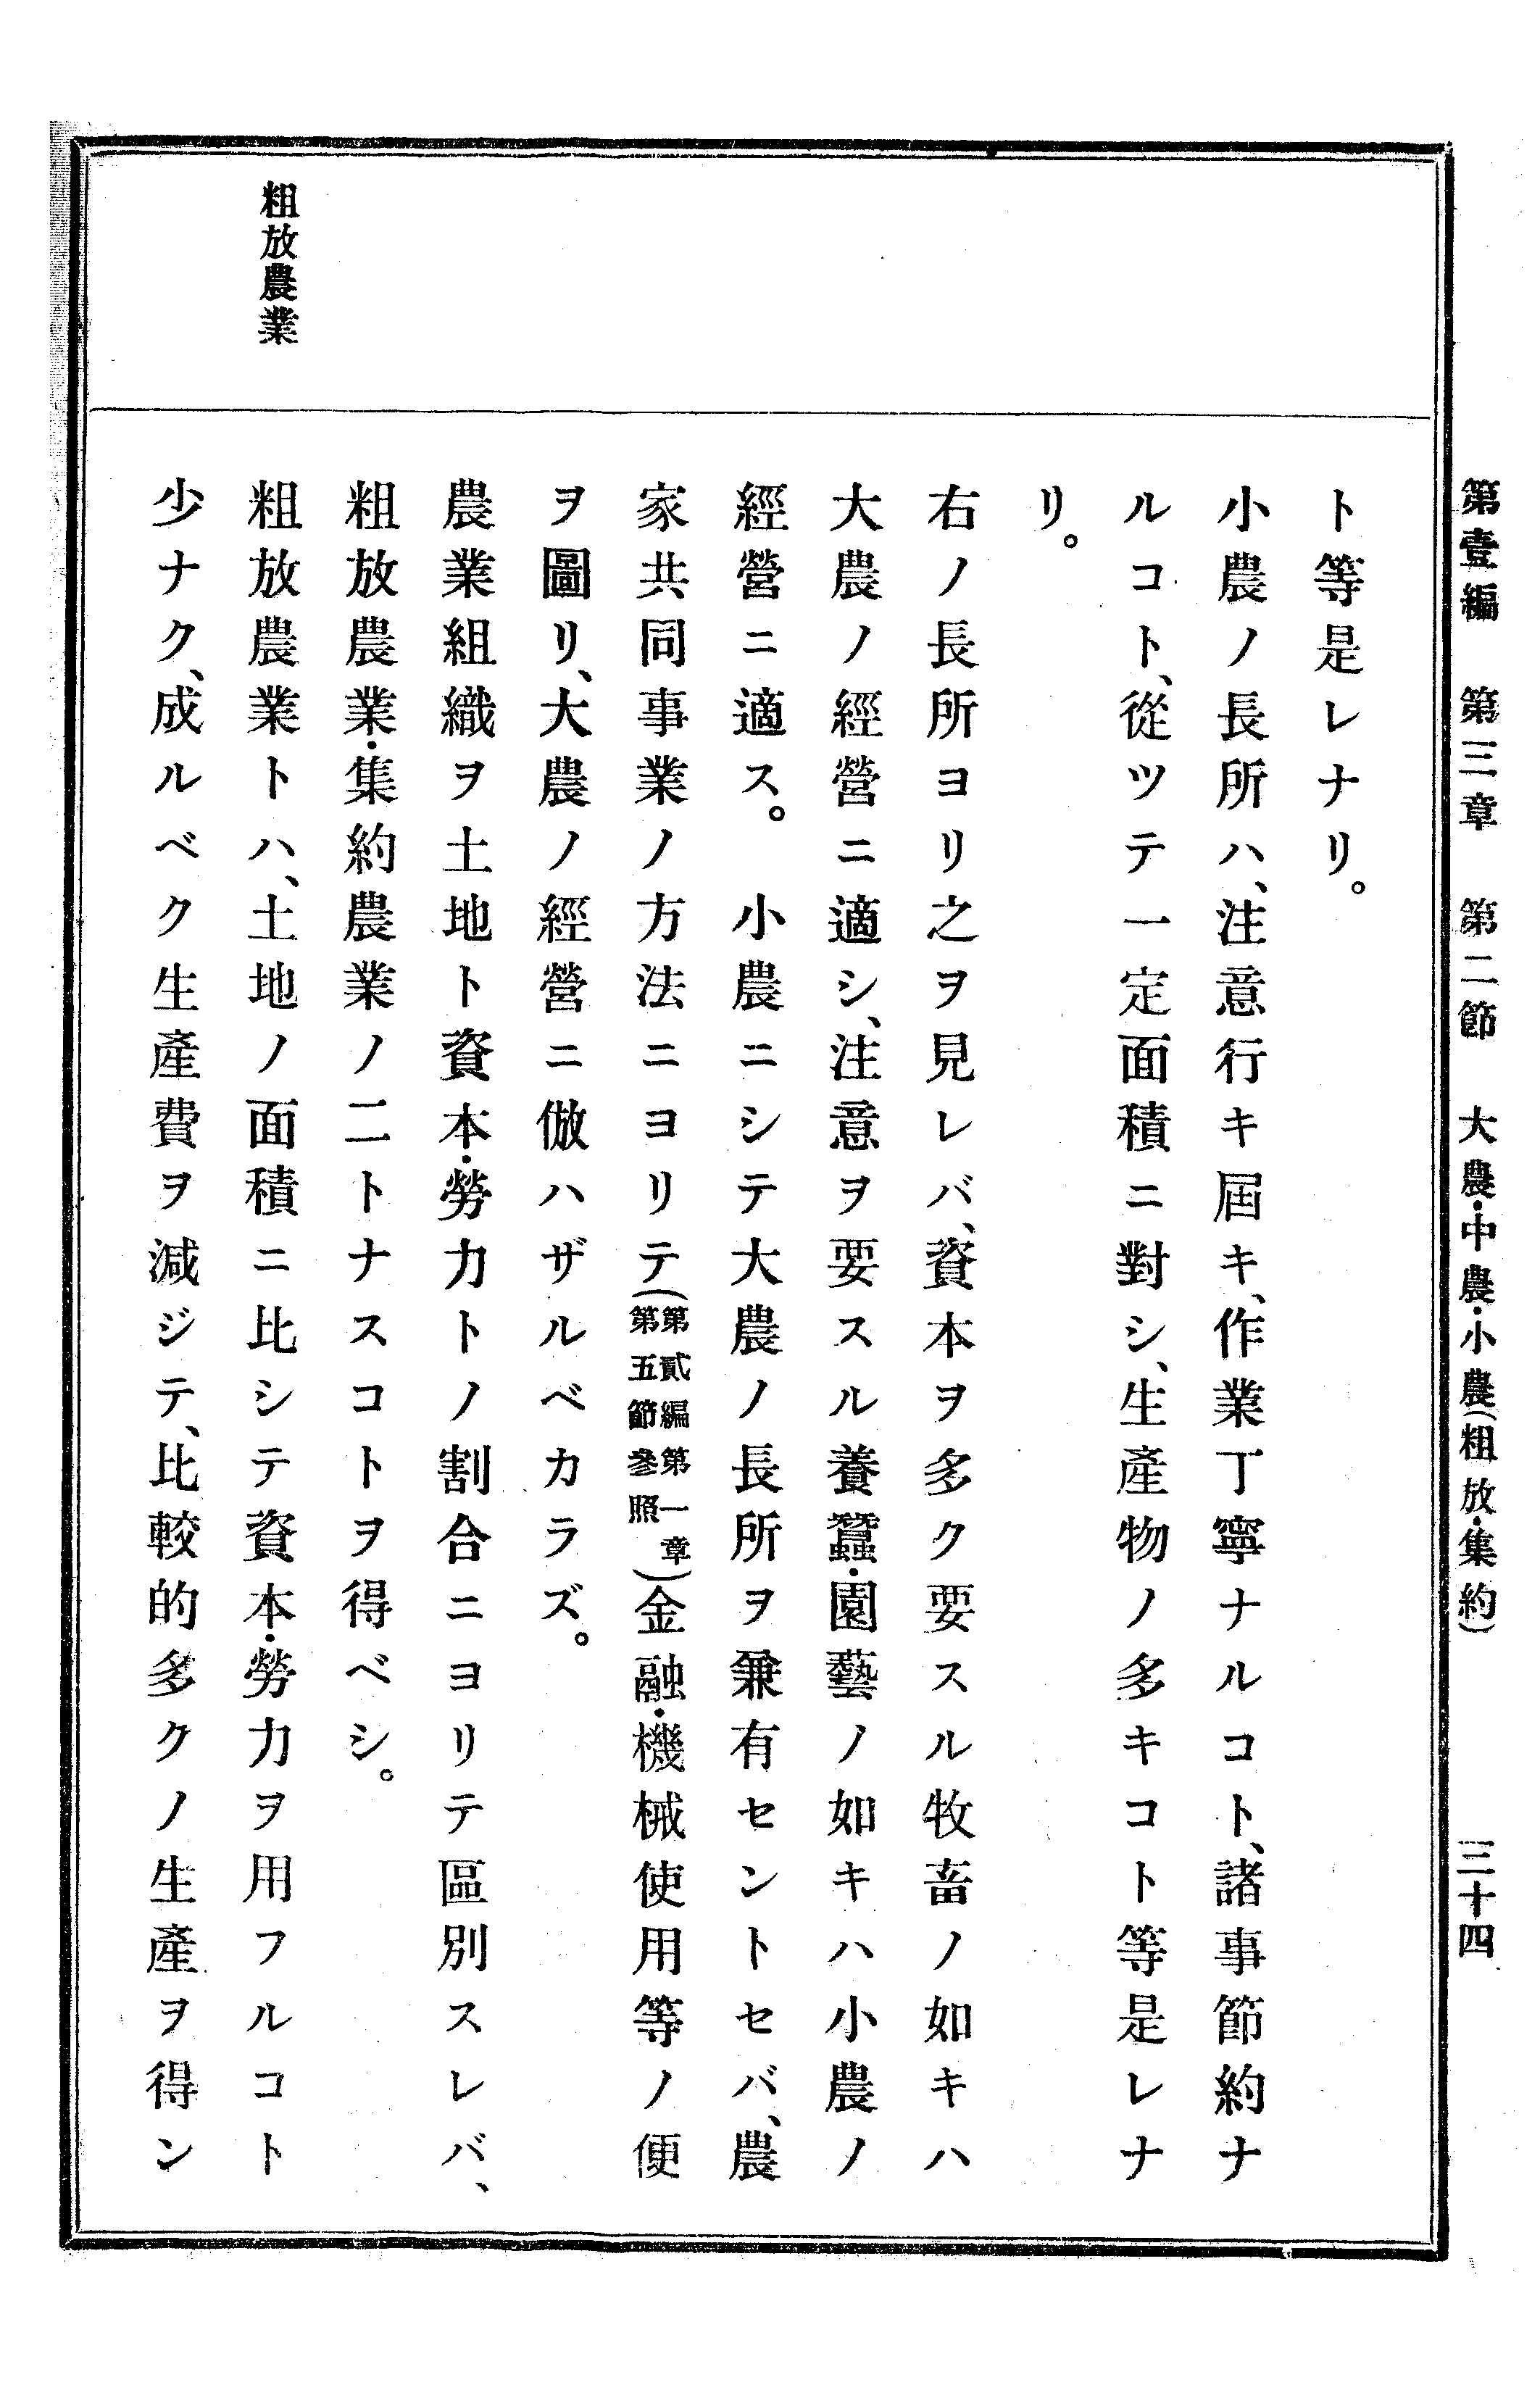 第壹編 第三章 第二節 大農・中農・小農(粗放・集約) 三十四
ト等是レナリ。
小農ノ長所ハ、注意行キ屆キ、作業丁寧ナルコト、諸事節約ナ
ルコト、從ツテ一定面積ニ對シ、生產物ノ多キコト等是レナ
リ。
右ノ長所ヨリ之ヲ見レバ、資本ヲ多ク要スル牧畜ノ如キハ
大農ノ經營ニ適シ、注意ヲ要スル養蠶・園藝ノ如キハ小農ノ
經營ニ適ス。 小農ニシテ大農ノ長所ヲ兼有セントセバ、農
家共同事業ノ方法ニヨリテ(第貳編第一章第五節參照)金融・機械使用等ノ便
ヲ圖リ、大農ノ經營ニ倣ハザルベカラズ。
農業組織ヲ土地ト資本・勞力トノ割合ニヨリテ區別スレバ、
粗放農業・集約農業ノ二トナスコトヲ得ベシ。
粗放農業
粗放農業トハ、土地ノ面積ニ比シテ資本・勞力ヲ用フルコト
少ナク、成ルベク生產費ヲ減ジテ、比較的多クノ生產ヲ得ン